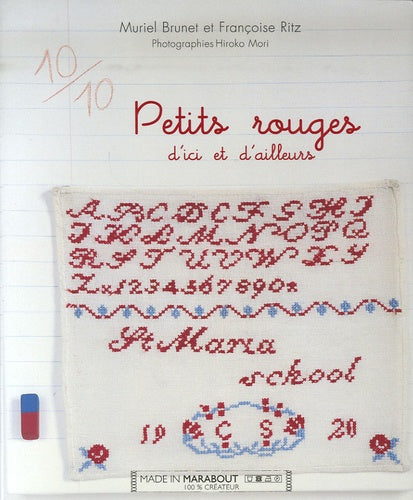 Muriel Brunet et Françoise Ritz
Photographies Hiroko Mori
10/10
Petits rouges
d'ici et d'ailleurs
A B C D E F G H I
J K L M N O P Q
R S T U V W X Y
Z x 1 2 3 4 5 6 7 8 9 0 x
St Maria
school
19 C S 20
MADE IN MARABOUT
100 % CRÉATEUR